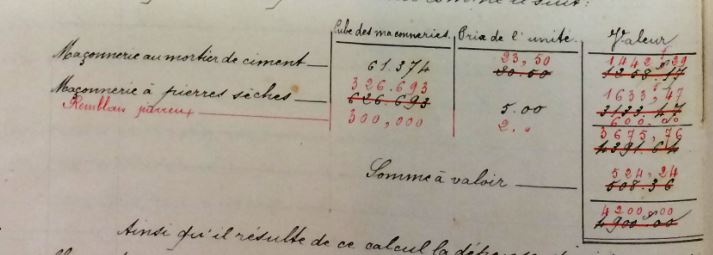 Cube des maçonneries. Prix de l'unité. Valeur
23,50 1442,29
Maçonnerie au mortier de ciment 61.374 20.50 1258.17
326.693 1633,47
Maçonnerie à pierres sèches 626.693 5.00 3133.47
Remblais pierreux 300,000 2.. 600.00
3675,76
4391.64
524,24
Somme à valoir 508.36
4200,00
4900.00
Ainsi qu'il résulte de ce calcul la